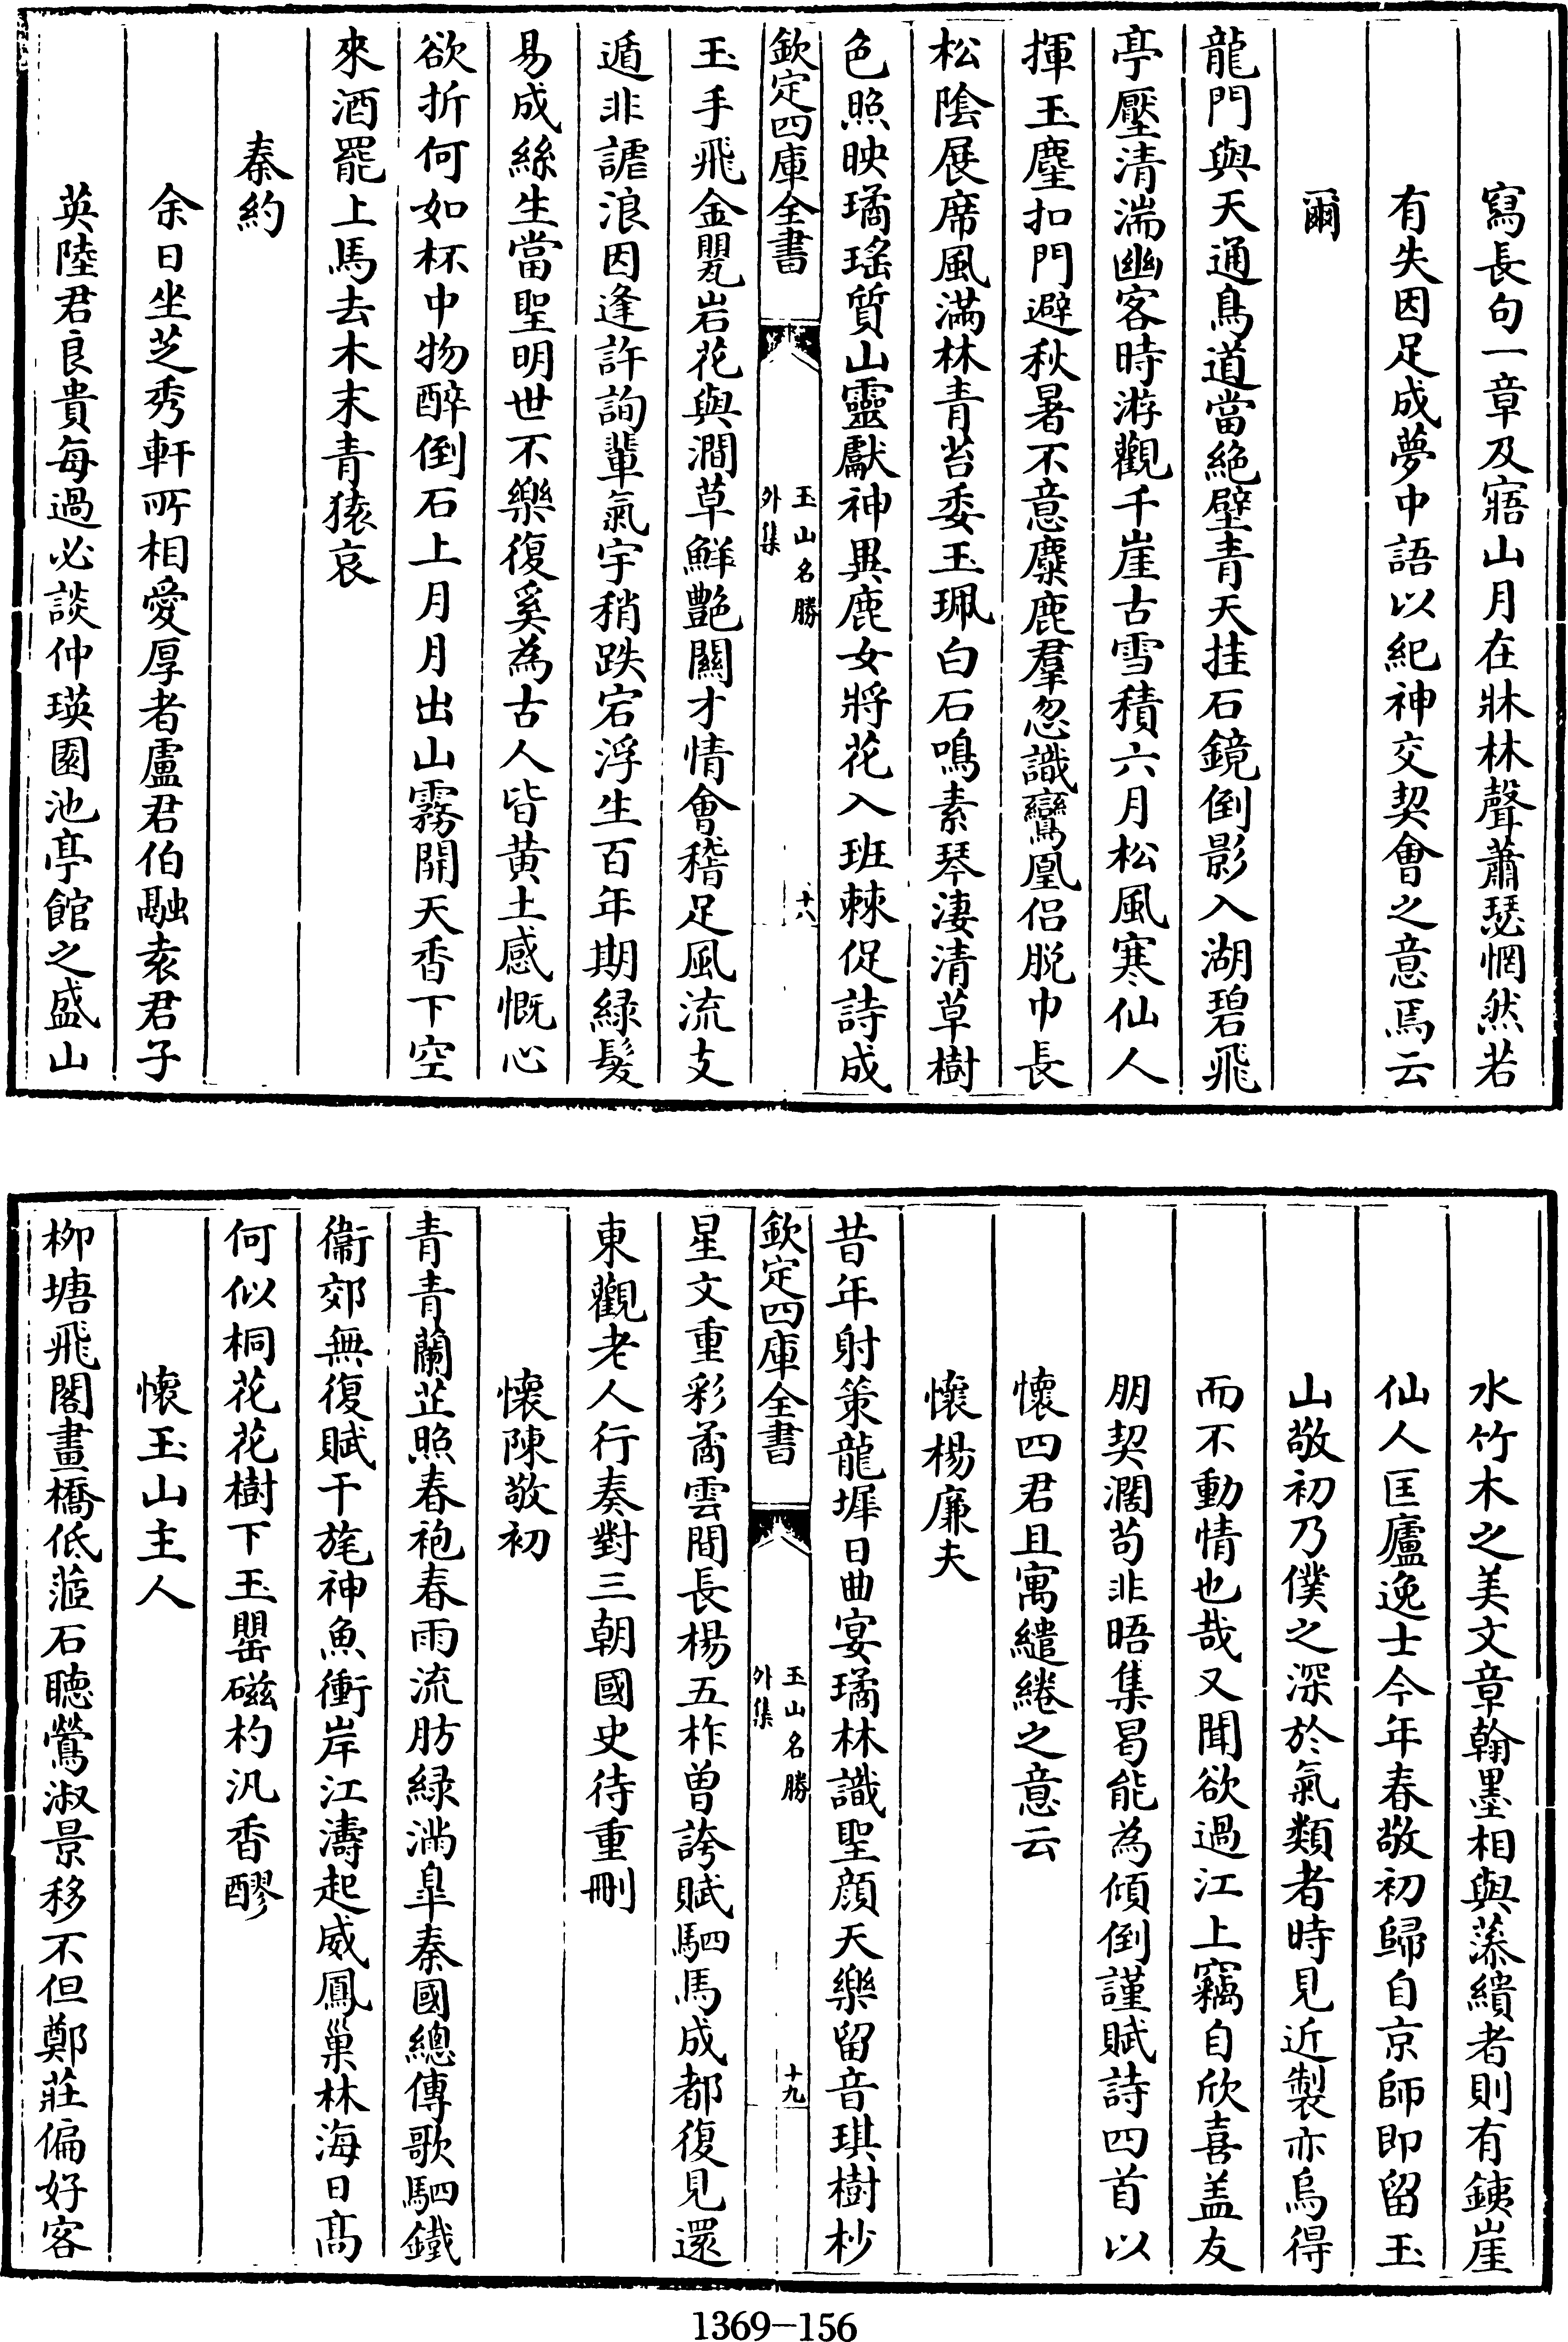 寫長句一章及寤山月在牀林聲蕭瑟惘然若
有失因足成夢中語以紀神交契會之意焉云
爾
龍門與天通鳥道當絶壁青天挂石鏡倒影入湖碧飛
亭壓清湍幽客時游觀千崖古雪積六月松風寒仙人
揮玉麈扣門避秋暑不意麋鹿羣忽識鸞凰侣脱巾長
松陰展席風滿林青苔委玉珮白石鳴素琴淒清草樹
色照映璚瑤質山靈獻神異鹿女將花入班棘促詩成
欽定四庫全書
玉山名勝
外集
十八
玉手飛金甖岩花與澗草鮮艶關才情會稽足風流支
遁非謔浪因逢許詢輩氣宇稍跌宕浮生百年期綠髮
易成絲生當聖明世不樂復奚為古人皆黄土感慨心
欲折何如杯中物醉倒石上月月出山霧開天香下空
來酒罷上馬去木末青猿哀
秦約
余日坐芝秀軒所相愛厚者盧君伯融袁君子
英陸君良貴每過必談仲瑛園池亭館之盛山
水竹木之美文章翰墨相與藻繢者則有銕崖
仙人匡廬逸士今年春敬初歸自京師即留玉
山敬初乃僕之深於氣類者時見近製亦烏得
而不動情也哉又聞欲過江上竊自欣喜盖友
朋契濶苟非晤集曷能為傾倒謹賦詩四首以
懷四君且寓繾綣之意云
懷楊廉夫
昔年射策龍墀日曲宴璚林識聖顔天樂留音琪樹杪
欽定四庫全書
玉山名勝
外集
十九
星文重彩矞雲間長楊五柞曽誇賦駟馬成都復見還
東觀老人行奏對三朝國史待重刪
懷陳敬初
青青蘭芷照春袍春雨流肪綠滿皐秦國總傳歌駟鐵
衞郊無復賦干旄神魚衝岸江濤起威鳳巢林海日髙
何似桐花花樹下玉罌磁杓汎香醪
懷玉山主人
柳塘飛閣畫橋低蒞石聴鶯淑景移不但鄭莊偏好客
1369-156